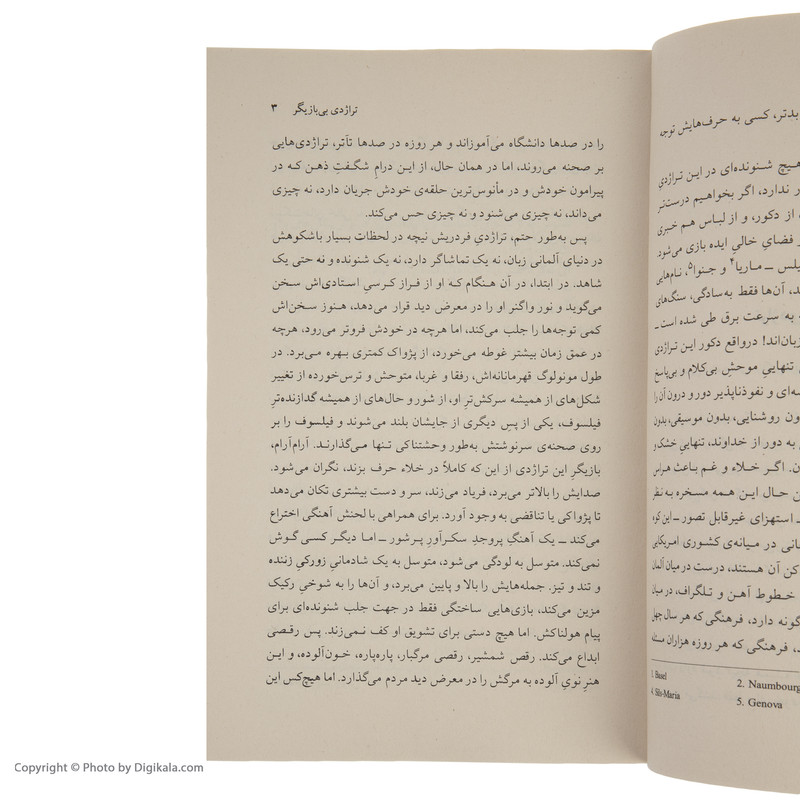 تراژدی بی‌بازیگر ۳
را در صدها دانشگاه می‌آموزاند و هر روزه در صدها تآتر، تراژدی‌هایی
بر صحنه می‌روند، اما در همان حال، از این درامِ شگفتِ ذهن که در
پیرامون خودش و در مأنوس‌ترین حلقه‌ی خودش جریان دارد، نه چیزی
می‌داند، نه چیزی می‌شنود و نه چیزی حس می‌کند.
پس به‌طور حتم، تراژدیِ فردریش نیچه در لحظات بسیار باشکوهش
در دنیای آلمانی زبان، نه یک تماشاگر دارد، نه یک شنونده و نه حتی یک
شاهد. در ابتدا، در آن هنگام که او از فراز کرسیِ استادی‌اش سخن
می‌گوید و نور واگنر او را در معرض دید قرار می‌دهد، هنوز سخن‌اش
کمی توجه‌ها را جلب می‌کند، اما هرچه در خودش فروتر می‌رود، هرچه
در عمق زمان بیشتر غوطه می‌خورد، از پژواک کمتری بهره می‌برد. در
طول مونولوگ قهرمانانه‌اش، رفقا و غربا، متوحش و ترس‌خورده از تغییر
شکل‌های از همیشه سرکش‌ترِ او، از شور و حال‌های از همیشه گدازنده‌ترِ
فیلسوف، یکی از پس دیگری از جایشان بلند می‌شوند و فیلسوف را بر
روی صحنه‌ی سرنوشتش به‌طور وحشتناکی تنها می‌گذارند. آرام‌آرام،
بازیگرِ این تراژدی از این که کاملاً در خلاء حرف بزند، نگران می‌شود.
صدایش را بالاتر می‌برد، فریاد می‌زند، سر و دست بیشتری تکان می‌دهد
تا پژواکی یا تناقضی به وجود آورد. برای همراهی با لحنش آهنگی اختراع
می‌کند ــ یک آهنگِ پروجدِ سکرآورِ پرشور ــ اما دیگر کسی گوش
نمی‌کند. متوسل به لودگی می‌شود، متوسل به یک شادمانیِ زورکیِ زننده
و تند و تیز. جمله‌هایش را بالا و پایین می‌برد، و آن‌ها را به شوخیِ رکیک
مزین می‌کند، بازی‌هایی ساختگی فقط در جهت جلب شنونده‌ای برای
پیام هولناکش. اما هیچ دستی برای تشویق او کف نمی‌زند. پس رقصی
ابداع می‌کند. رقص شمشیر، رقصی مرگبار، پاره‌پاره، خون‌آلوده، و این
هنرِ نوّیِ آلوده به مرگش را در معرض دید مردم می‌گذارد. اما هیچ‌کس این
بدتر، کسی به حرف‌هایش توجه
هیچ شنونده‌ای در این تراژدیِ
ندارد، اگر بخواهیم درست‌تر
از دکور، و از لباس هم خبری
فضایِ خالیِ ایده بازی می‌شود.
ــ ماریا۴ و جنوا۵، نام‌هایی
آن‌ها فقط به‌سادگی، سنگ‌های
به سرعت برق طی شده است ــ
زبان‌اند! درواقع دکور این تراژدی
تنهاییِ موحشِ بی‌کلام و بی‌پاسخ
و نفوذناپذیر دور و درون آن را
روشنایی، بدون موسیقی، بدون
به دور از خداوند، تنهاییِ خشک و
اگر خلاء و غم باعث هراس
حال این همه مسخره به نظر
استهزای غیرقابل تصور ــ این که
در میانه‌ی کشوری امریکایی
آن هستند، درست در میان آلمان
خطوط آهن و تلگراف، در میان
دارد، فرهنگی که هر سال چهل
فرهنگی که هر روزه هزاران مسئله
1. Basel
2. Naumbourg
4. Sils-Maria
5. Genova
Copyright © Photo by Digikala.com